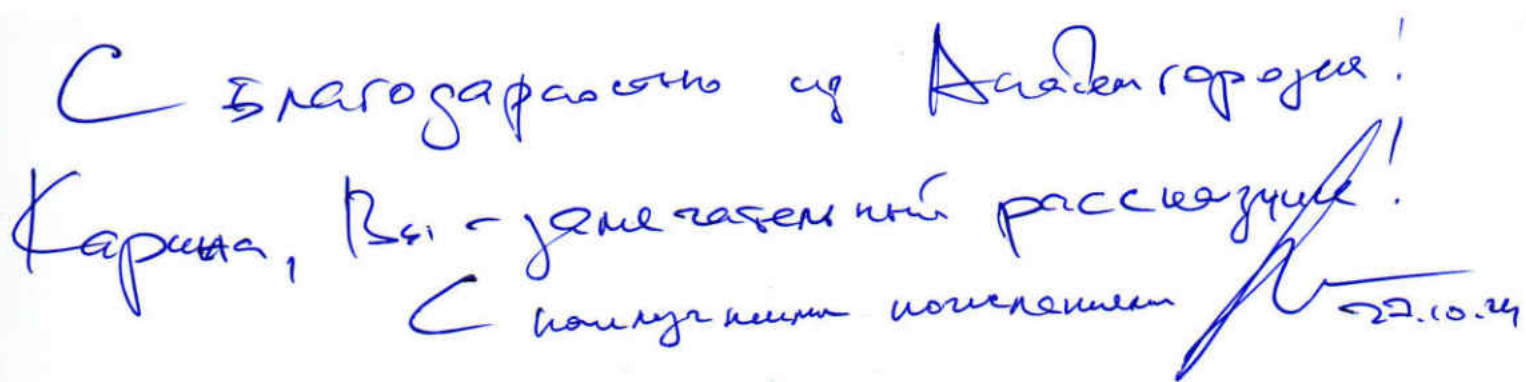 С благодарностью из Академгородка!
Карина, Вы - замечательный рассказчик!
С наилучшими пожеланиями
27.10.24